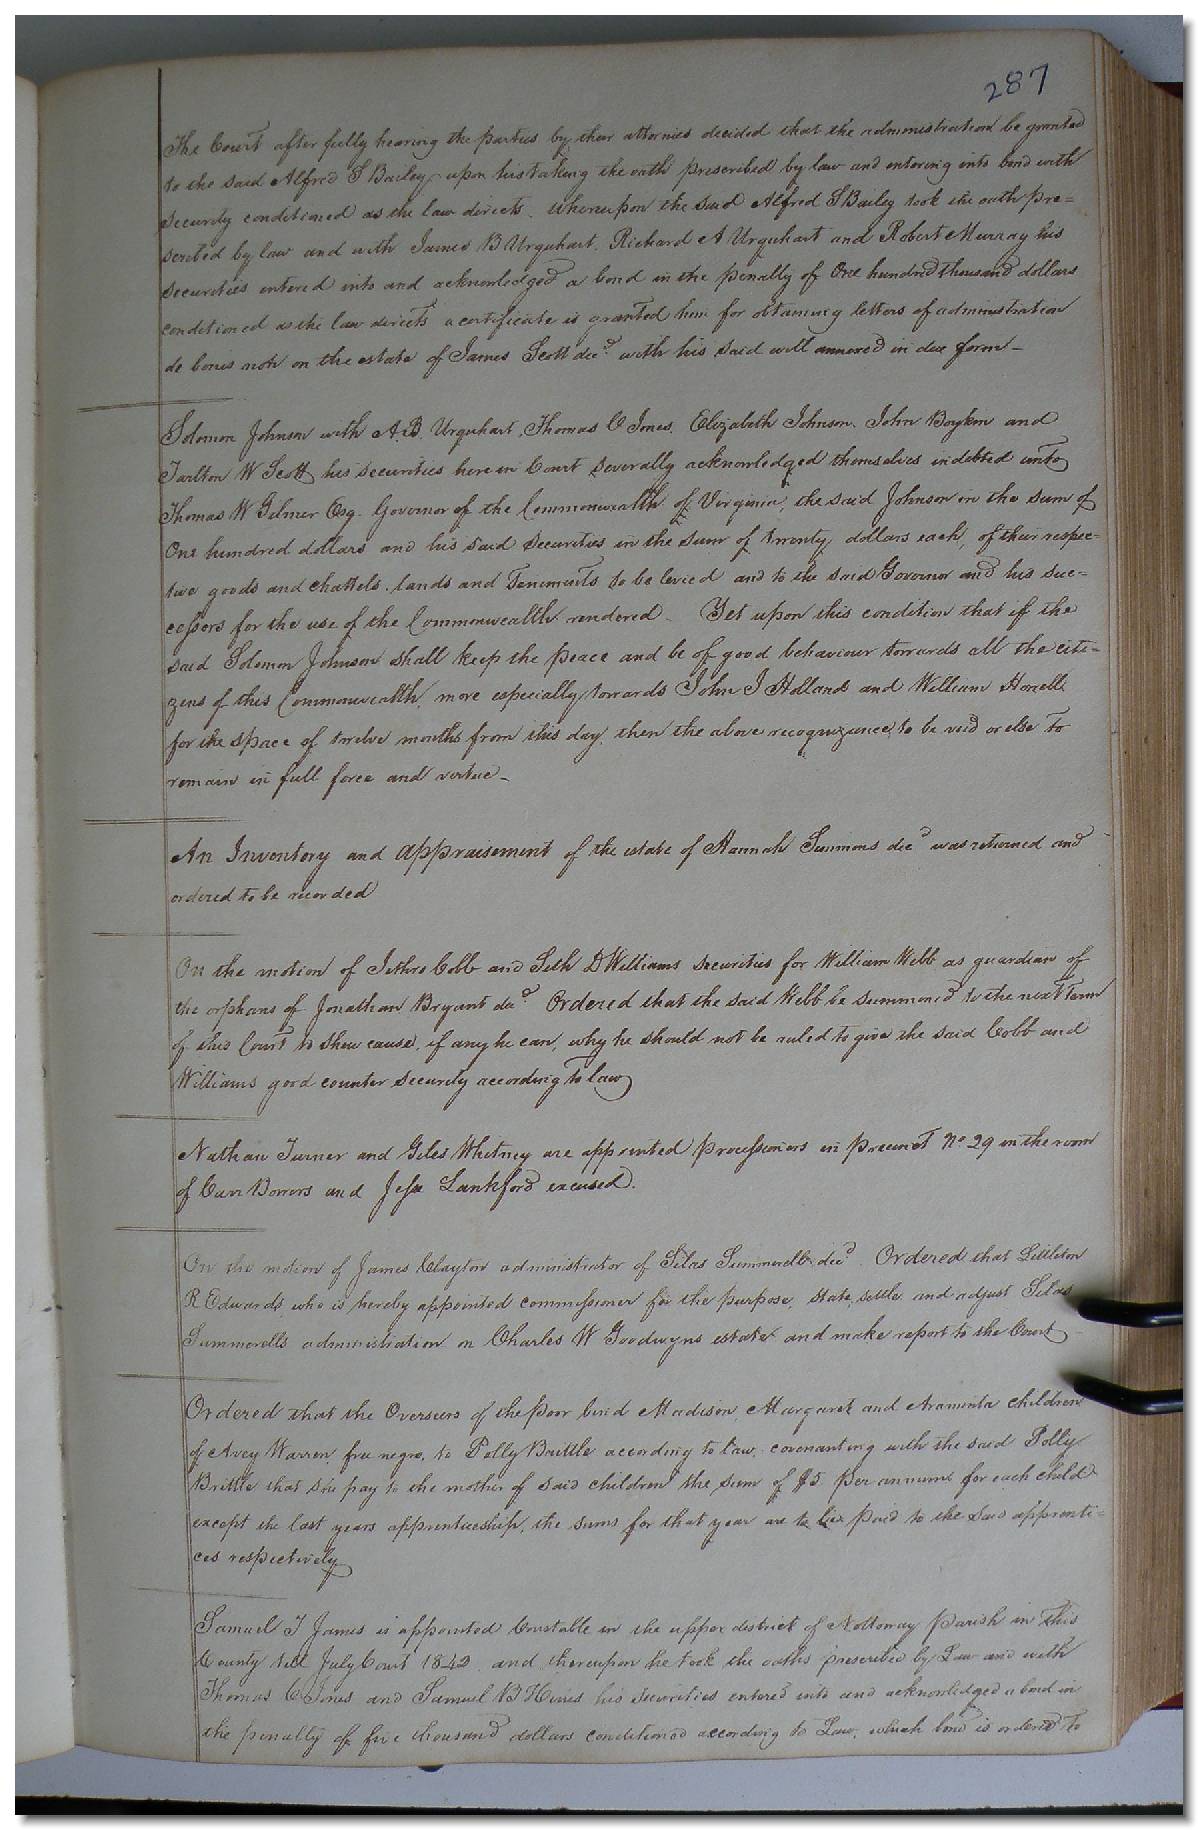 287
The Court after fully hearing the parties by their attornies decided that the administration be granted
to the said Alfred S Bailey upon his taking the oath prescribed by law and entering into bond with
security conditioned as the law directs. Whereupon the said Alfred S Bailey took the oath pre=
scribed by law and with James B Urquhart, Richard A Urquhart and Robert Murray his
securities entered into and acknowledged a bond in the penalty of One hundred thousand dollars
conditioned as the law directs a certificate is granted him for obtaining letters of administration
de bonis non on the estate of James Scott decd. with his said will annexed in due form—
Solomon Johnson with A.B. Urquhart, Thomas C Jones, Elizabeth Johnson, John Boykin and
Tarlton W Scott his securities here in Court severally acknowledged themselves indebted unto
Thomas W Gilmer Esq. Governor of the Commonwealth of Virginia, the said Johnson in the sum of
One hundred dollars and his said securities in the sum of twenty dollars each, of their respec=
tive goods and chattels, lands and Tenements to be levied and to the said Governor and his suc=
cessors for the use of the Commonwealth rendered. Yet upon this condition that if the
said Solomon Johnson shall keep the peace and be of good behaviour towards all the citi=
zens of this Commonwealth, more especially towards John J Holland and William Howell
for the space of twelve months from this day, then the above recognizance, to be void or else to
remain in full force and virtue—
An Inventory and appraisement of the estate of Hannah Simmons decd was returned and
ordered to be recorded
On the motion of Jethro Cobb and Seth D Williams securities for William Webb as guardian of
the orphans of Jonathan Bryant decd. Ordered that the said Webb be summoned to the next Term
of this Court to shew cause, if any he can, why he should not be ruled to give the said Cobb and
Williams good counter security according to law
Nathan Turner and Giles Whitney are appointed processioners in precinct No 29 in the room
of Carr Bowers and Jesse Lankford excused.
On the motion of James Clayton administrator of Silas Summerell decd Ordered that Littleton
R Edwards, who is hereby appointed commissioner for the purpose, state, settle and adjust Silas
Summerells administration on Charles W Goodwyns estate and make report to the Court
Ordered that the Overseers of the poor bind Madison, Margaret and Araminta children
of Avey Warren, free negro, to Polly Brittle according to law, covenanting with the said Polly
Brittle that she pay to the mother of said children the sum of $5 per annum for each child
except the last years apprenticeship, the sums for that year are to be paid to the said apprenti=
ces respectively
Samuel T James is appointed Constable in the upper district of Nottoway Parish in this
County till July Court 1842 and thereupon he took the oaths prescribed by Law and with
Thomas C Jones and Samuel B Hines his securities entered into and acknowledged a bond in
the penalty of five thousand dollars conditioned according to Law, which bond is ordered to